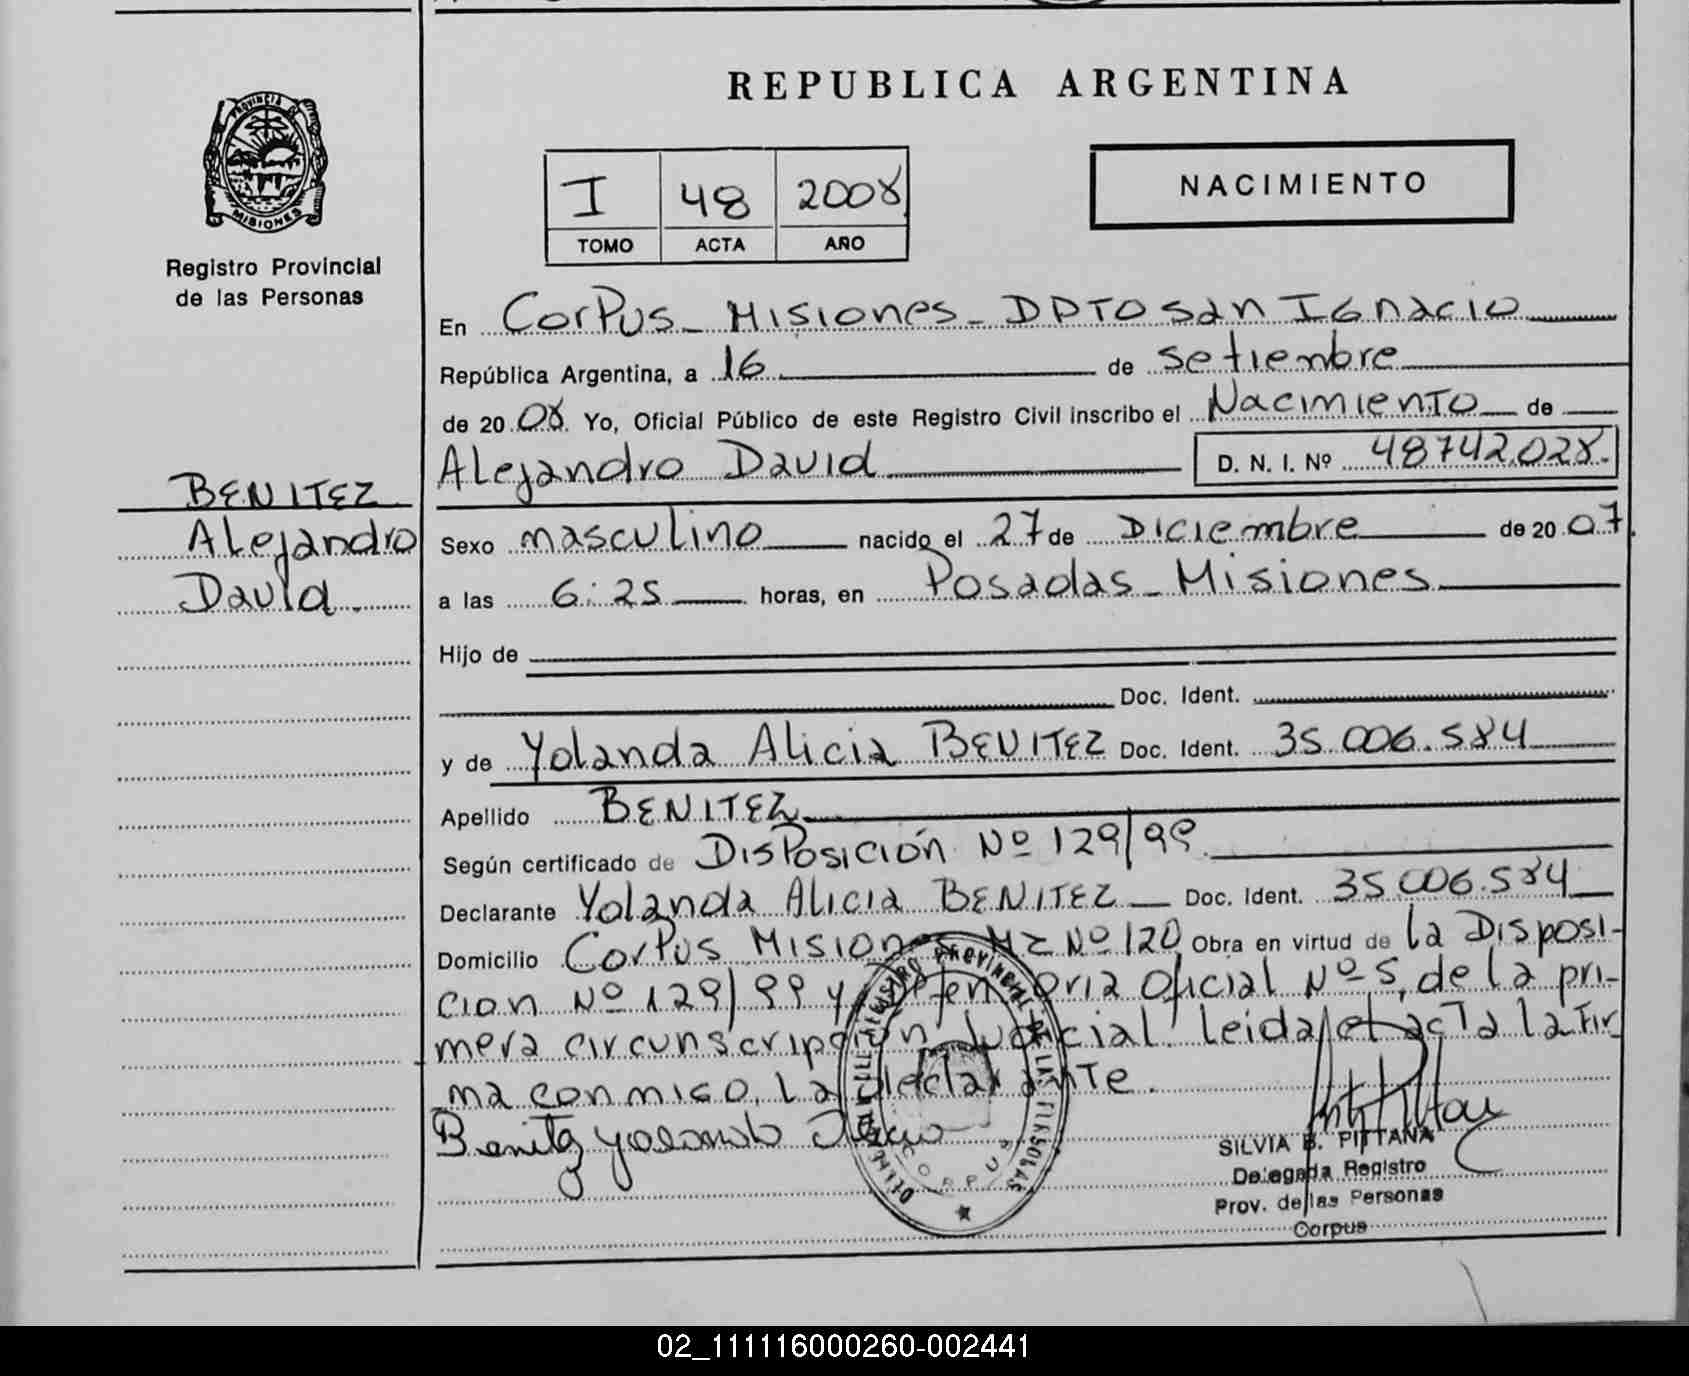 PROVINCIA DE
MISIONES
Registro Provincial
de las Personas
REPUBLICA ARGENTINA
I 48 2008
TOMO ACTA AÑO
NACIMIENTO
En Corpus - Misiones - DPTO San Ignacio
República Argentina, a 16 de Setiembre
de 2008 Yo, Oficial Público de este Registro Civil inscribo el Nacimiento de
Alejandro David D. N. I. Nº 48742.028.
BENITEZ
Alejandro
David
Sexo masculino nacido el 27 de Diciembre de 2007
a las 6:25 horas, en Posadas - Misiones
Hijo de
Doc. Ident.
y de Yolanda Alicia BENITEZ Doc. Ident. 35.006.584
Apellido BENITEZ
Según certificado de Disposición Nº 129/99
Declarante Yolanda Alicia BENITEZ Doc. Ident. 35.006.584
Domicilio Corpus Misiones Mz Nº 120 Obra en virtud de la Disposi-
cion Nº 129/99 y Defensoria Oficial Nº 5, de la pri-
mera circunscripción Judicial. leida el acta la Fir-
ma conmigo, La declarante.
Benitez Yolanda Alicia
SILVIA B. PITTANA
Delegada Registro
Prov. de las Personas
Corpus
REGISTRO PROVINCIAL DE LAS PERSONAS
CORPUS
02_111116000260-002441